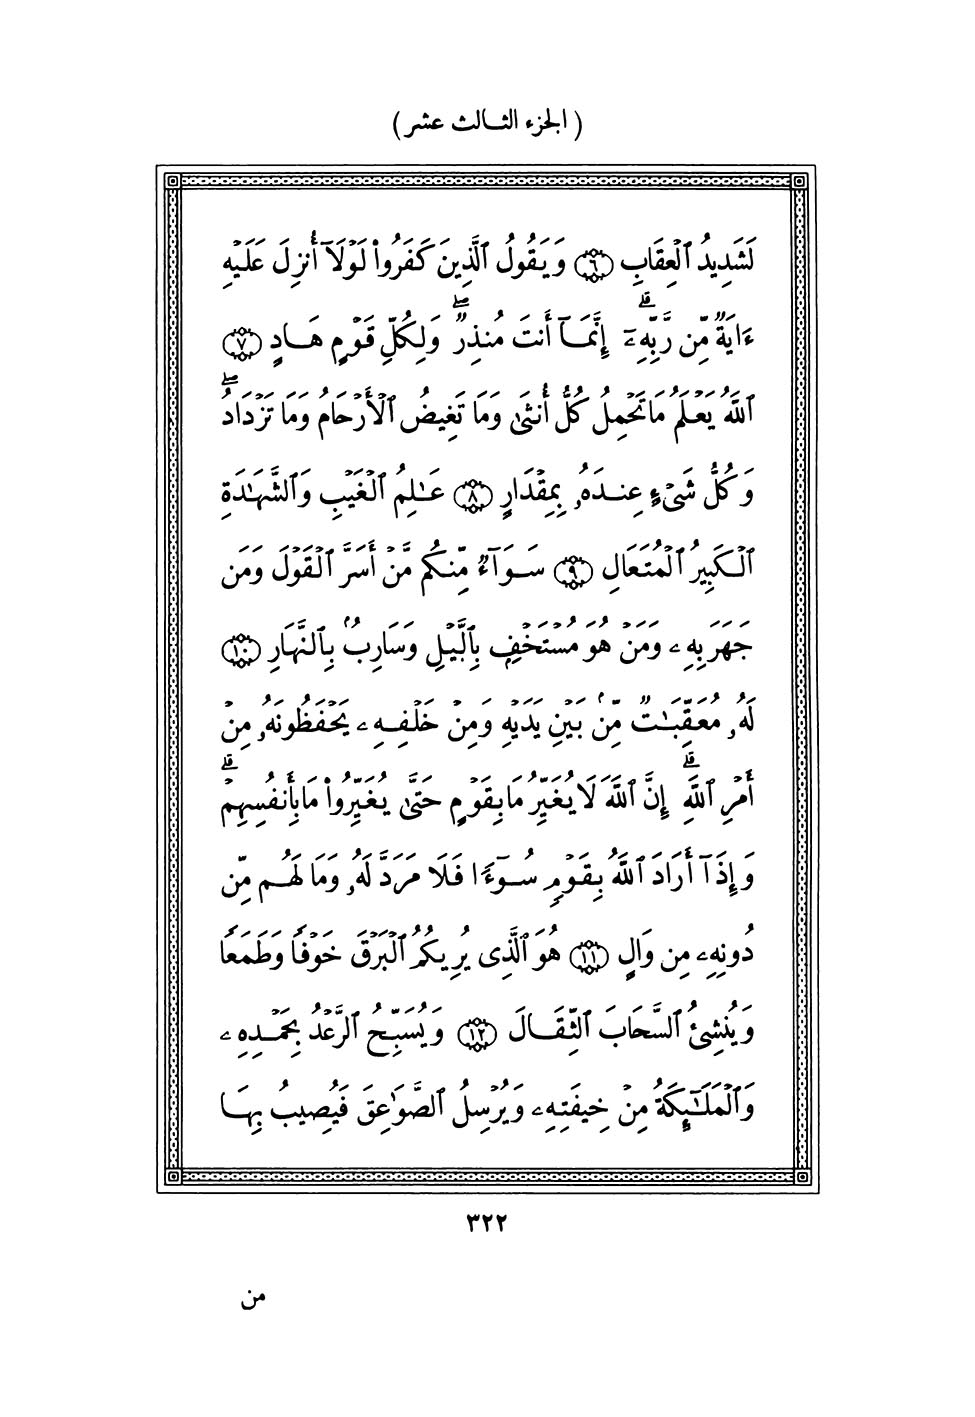 ( الجزء الثالث عشر )
لَشَدِيدُ ٱلْعِقَابِ ٦ وَيَقُولُ ٱلَّذِينَ كَفَرُواْ لَوْلَآ أُنزِلَ عَلَيْهِ
ءَايَةٌ مِّن رَّبِّهِۦٓ ۗ إِنَّمَآ أَنتَ مُنذِرٌ ۖ وَلِكُلِّ قَوْمٍ هَادٍ ٧
ٱللَّهُ يَعْلَمُ مَا تَحْمِلُ كُلُّ أُنثَىٰ وَمَا تَغِيضُ ٱلْأَرْحَامُ وَمَا تَزْدَادُ ۖ
وَكُلُّ شَىْءٍ عِندَهُۥ بِمِقْدَارٍ ٨ عَٰلِمُ ٱلْغَيْبِ وَٱلشَّهَٰدَةِ
ٱلْكَبِيرُ ٱلْمُتَعَالِ ٩ سَوَآءٌ مِّنكُم مَّنْ أَسَرَّ ٱلْقَوْلَ وَمَن
جَهَرَ بِهِۦ وَمَنْ هُوَ مُسْتَخْفٍۭ بِٱلَّيْلِ وَسَارِبُۢ بِٱلنَّهَارِ ١٠
لَهُۥ مُعَقِّبَٰتٌ مِّنۢ بَيْنِ يَدَيْهِ وَمِنْ خَلْفِهِۦ يَحْفَظُونَهُۥ مِنْ
أَمْرِ ٱللَّهِ ۗ إِنَّ ٱللَّهَ لَا يُغَيِّرُ مَا بِقَوْمٍ حَتَّىٰ يُغَيِّرُواْ مَا بِأَنفُسِهِمْ ۗ
وَإِذَآ أَرَادَ ٱللَّهُ بِقَوْمٍ سُوٓءًا فَلَا مَرَدَّ لَهُۥ وَمَا لَهُم مِّن
دُونِهِۦ مِن وَالٍ ١١ هُوَ ٱلَّذِى يُرِيكُمُ ٱلْبَرْقَ خَوْفًا وَطَمَعًا
وَيُنشِئُ ٱلسَّحَابَ ٱلثِّقَالَ ١٢ وَيُسَبِّحُ ٱلرَّعْدُ بِحَمْدِهِۦ
وَٱلْمَلَٰٓئِكَةُ مِنْ خِيفَتِهِۦ وَيُرْسِلُ ٱلصَّوَٰعِقَ فَيُصِيبُ بِهَا
٣٢٢
من